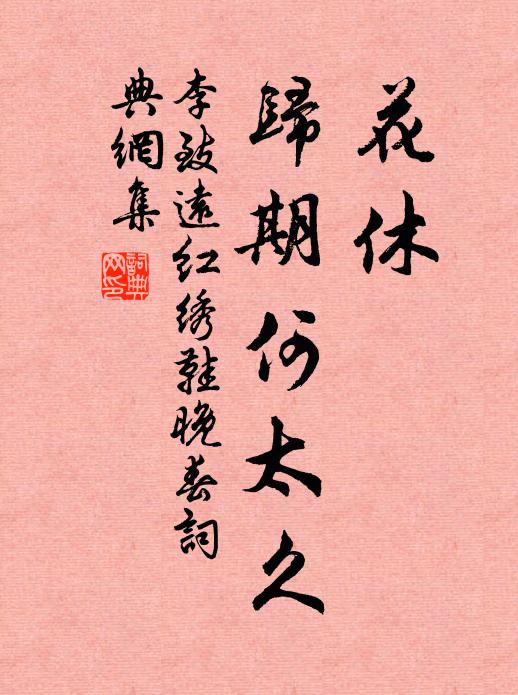 花休
歸期何太久
李致遠红绣鞋晚春詞
典網集
詞典网印